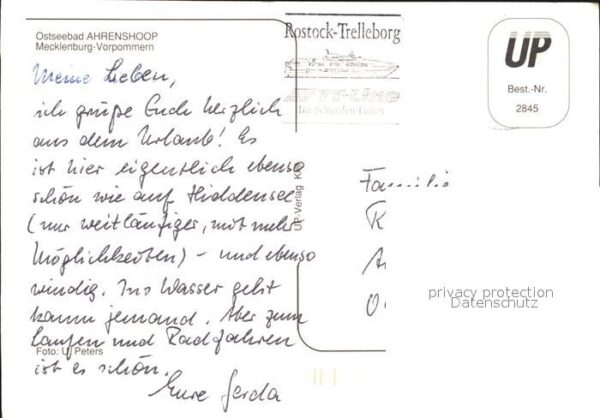 Ostseebad AHRENSHOOP
Mecklenburg-Vorpommern
Meine Lieben,
ich grüße Euch herzlich
aus dem Urlaub! Es
ist hier eigentlich ebenso
schön wie auf Hiddensee
(nur weitläufiger, mit mehr
Möglichkeiten) - und ebenso
windig. Ins Wasser geht
kaum jemand. Aber zum
Laufen und Radfahren
ist es schön.
Eure Gerda
Foto: U. Peters
UP-Verlag
Rostock-Trelleborg
TT-Line
Die Schweden-Fähren
UP
Best.-Nr.
2845
Familie
K
A
O
privacy protection
Datenschutz